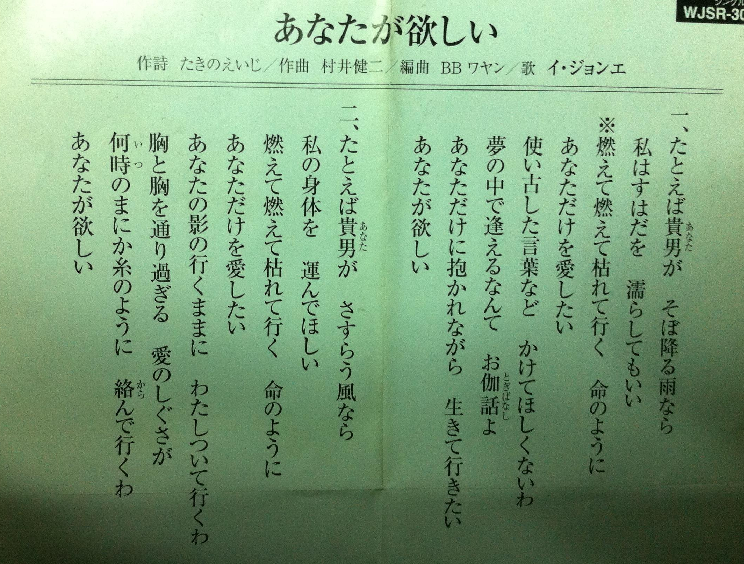 シングル
WJSR-30
あなたが欲しい
作詩 たきのえいじ/作曲 村井健二/編曲 BBワヤン/歌 イ・ジョンエ
一、たとえば貴男が そぼ降る雨なら
私はすはだを 濡らしてもいい
※燃えて燃えて枯れて行く 命のように
あなただけを愛したい
使い古した言葉など かけてほしくないわ
夢の中で逢えるなんて お伽話よ
あなただけに抱かれながら 生きて行きたい
あなたが欲しい
二、たとえば貴男が さすらう風なら
私の身体を 運んでほしい
燃えて燃えて枯れて行く 命のように
あなただけを愛したい
あなたの影の行くままに わたしついて行くわ
胸と胸を通り過ぎる 愛のしぐさが
何時のまにか糸のように 絡んで行くわ
あなたが欲しい